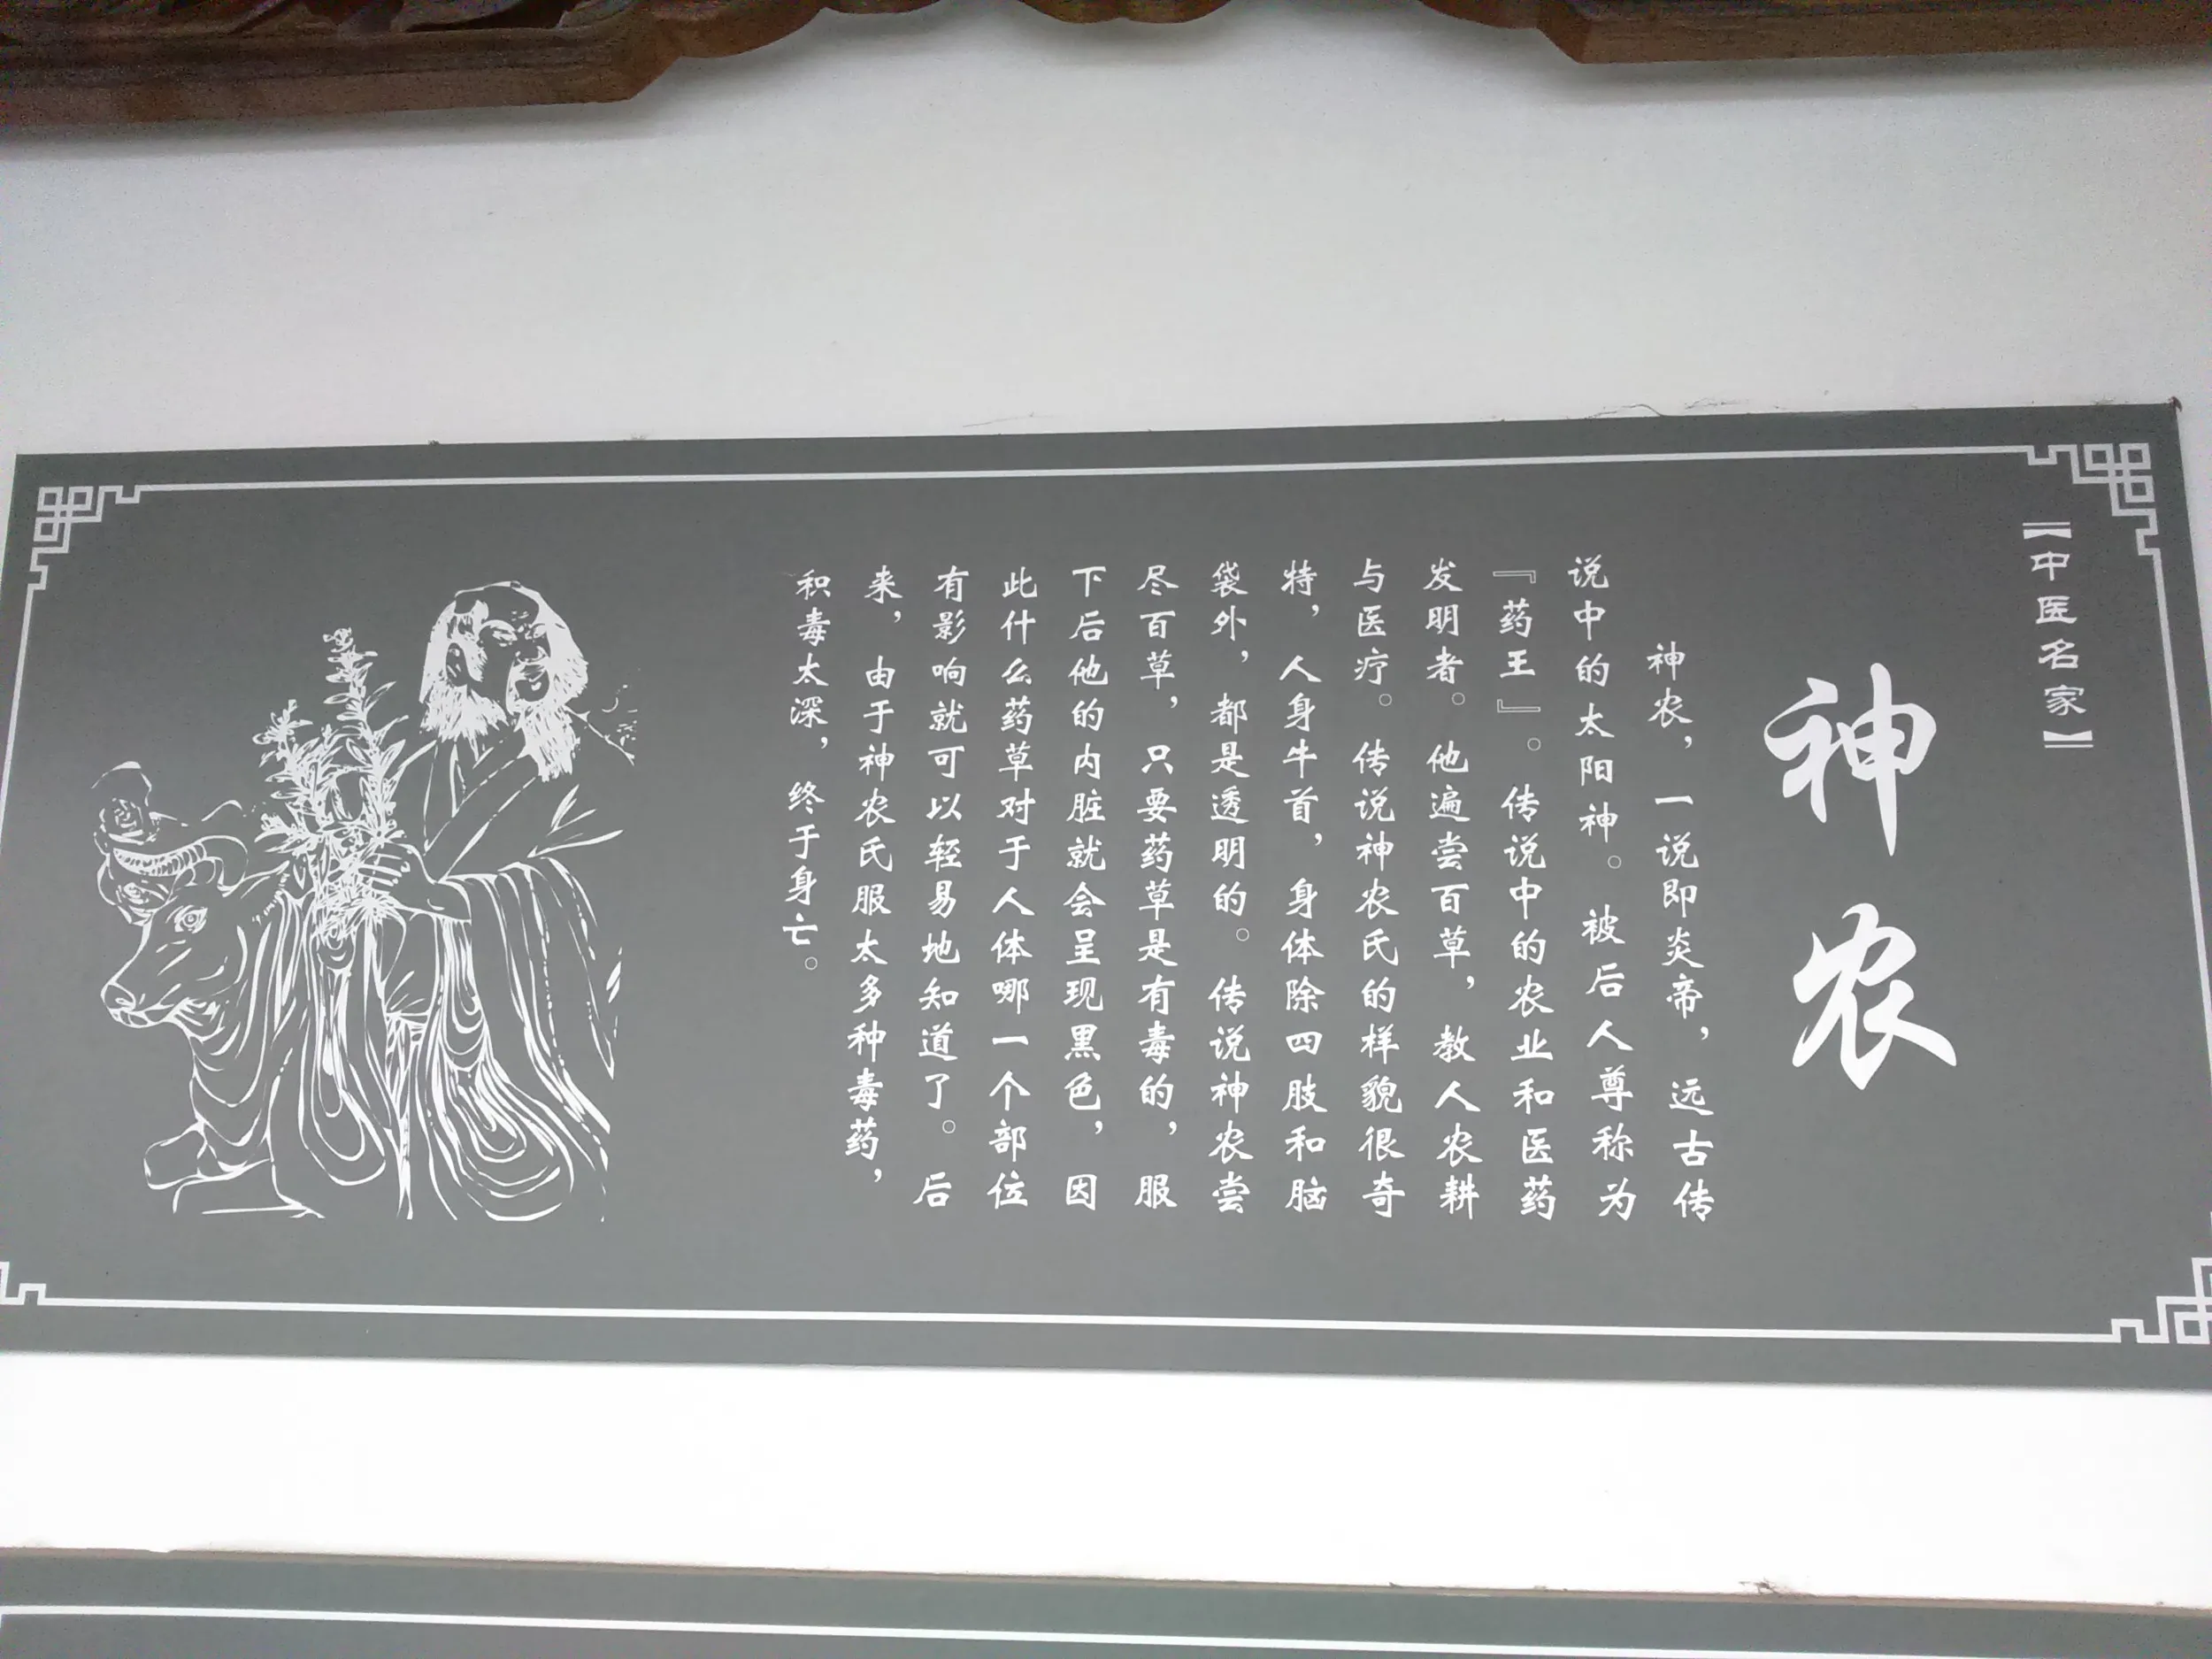 【中医名家】
神农
神农，一说即炎帝，远古传
说中的太阳神。被后人尊称为
『药王』。传说中的农业和医药
发明者。他遍尝百草，教人农耕
与医疗。传说神农氏的样貌很奇
特，人身牛首，身体除四肢和脑
袋外，都是透明的。传说神农尝
尽百草，只要药草是有毒的，服
下后他的内脏就会呈现黑色，因
此什么药草对于人体哪一个部位
有影响就可以轻易地知道了。后
来，由于神农氏服太多种毒药，
积毒太深，终于身亡。